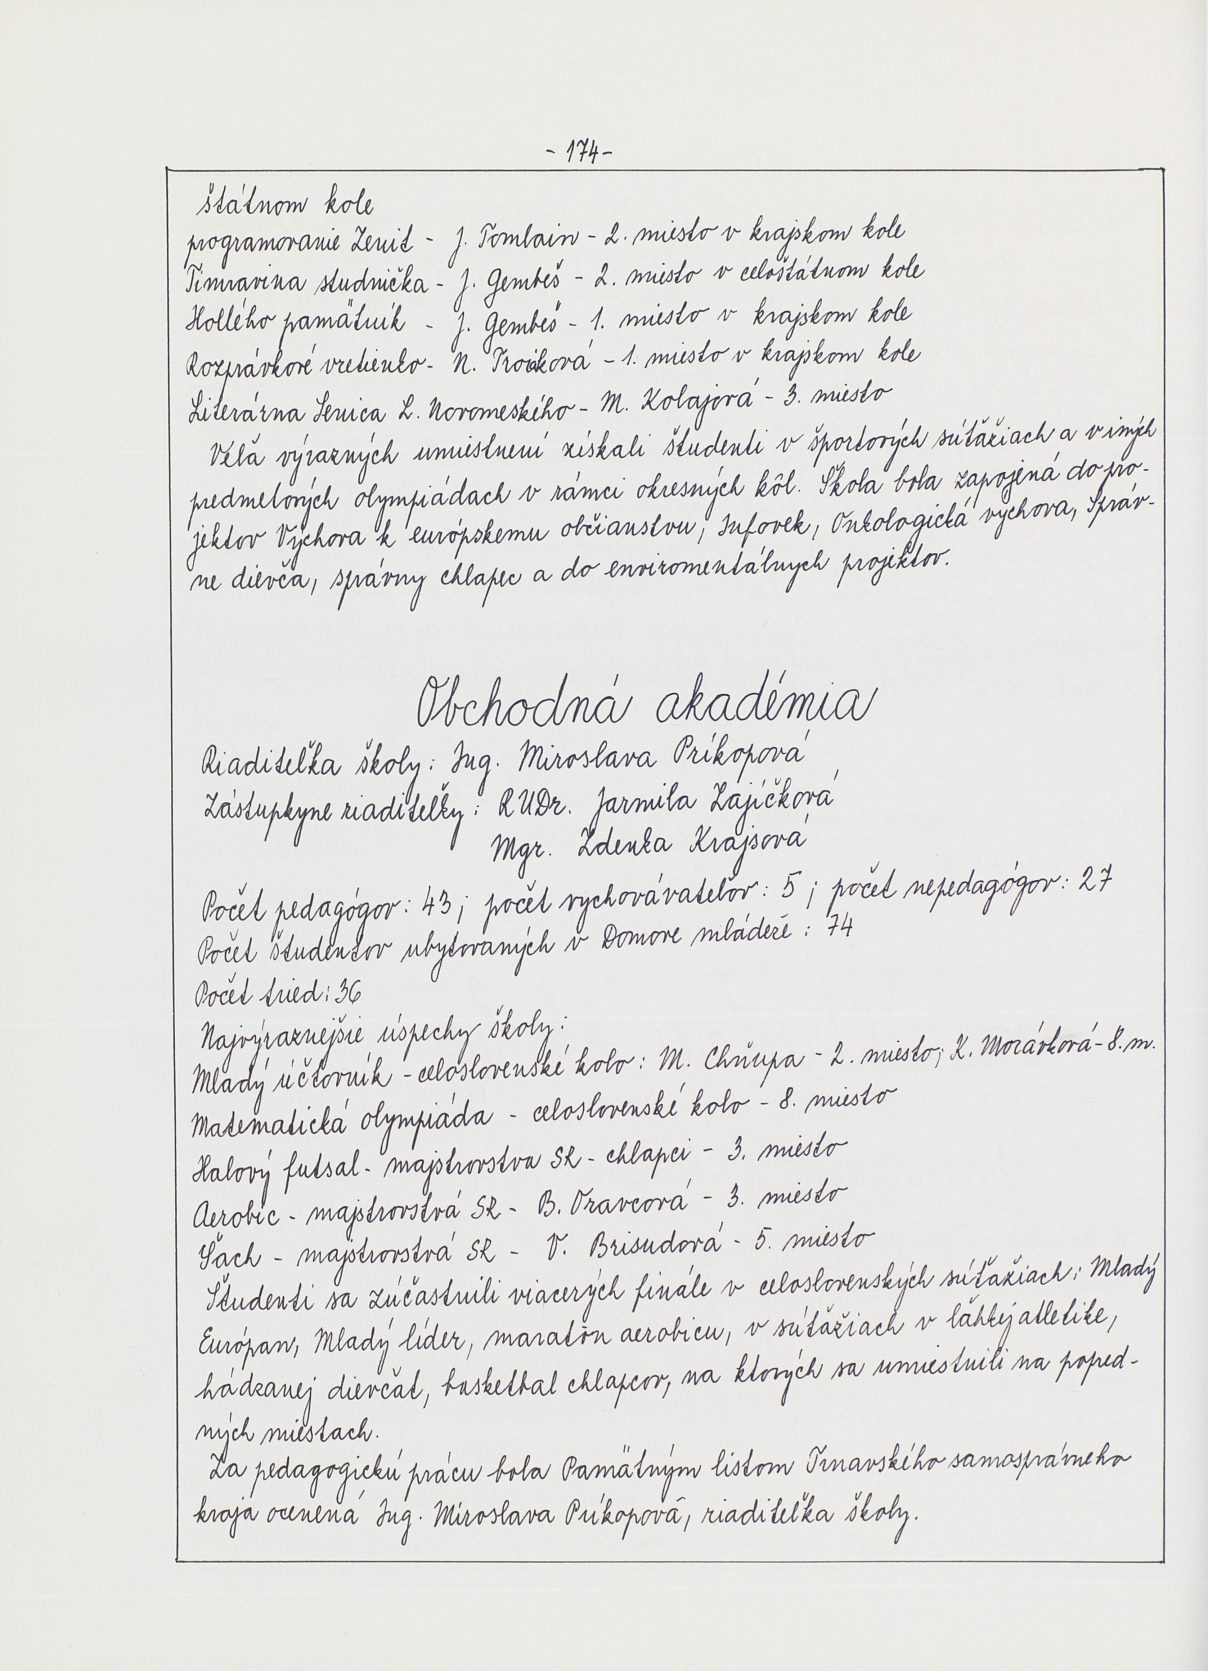 - 174 -
štátnom kole
programovanie Zenit - J. Tomlain - 2. miesto v krajskom kole
Timravina studnička - J. Gembeš - 2. miesto v celoštátnom kole
Hollého pamätník - J. Gembeš - 1. miesto v krajskom kole
Rozprávkové vretienko - N. Trojčková - 1. miesto v krajskom kole
Literárna Senica L. Novomeského - M. Kolajová - 3. miesto
Veľa výrazných umiestnení získali študenti v športových súťažiach a v iných
predmetových olympiádach v rámci okresných kôl. Škola bola zapojená do pro-
jektov Výchova k európskemu občianstvu, Infovek, Onkologická výchova, Správ-
ne dievča, správny chlapec a do enviromentálnych projektov.
Obchodná akadémia
Riaditeľka školy: Ing. Miroslava Príkopová
Zástupkyne riaditeľky: RUDr. Jarmila Zajíčková
Mgr. Zdenka Krajsová
Počet pedagógov: 43; počet vychovávateľov: 5; počet nepedagógov: 27
Počet študentov ubytovaných v Domove mládeže: 74
Počet tried: 36
Najvýraznejšie úspechy školy:
Mladý účtovník - celoslovenské kolo: M. Chňupa - 2. miesto; K. Morávková - 8. m.
Matematická olympiáda - celoslovenské kolo - 8. miesto
Halový futsal - majstrovstva SR - chlapci - 3. miesto
Aerobic - majstrovstvá SR - B. Oravcová - 3. miesto
Šach - majstrovstvá SR - V. Brisudová - 5. miesto
Študenti sa zúčastnili viacerých finále v celoslovenských súťažiach: Mladý
Európan, Mladý líder, maratón aerobicu, v súťažiach v ľahkej atletike,
hádzanej dievčat, basketbal chlapcov, na ktorých sa umiestnili na popred-
ných miestach.
Za pedagogickú prácu bola Pamätným listom Trnavského samosprávneho
kraja ocenená Ing. Miroslava Príkopová, riaditeľka školy.